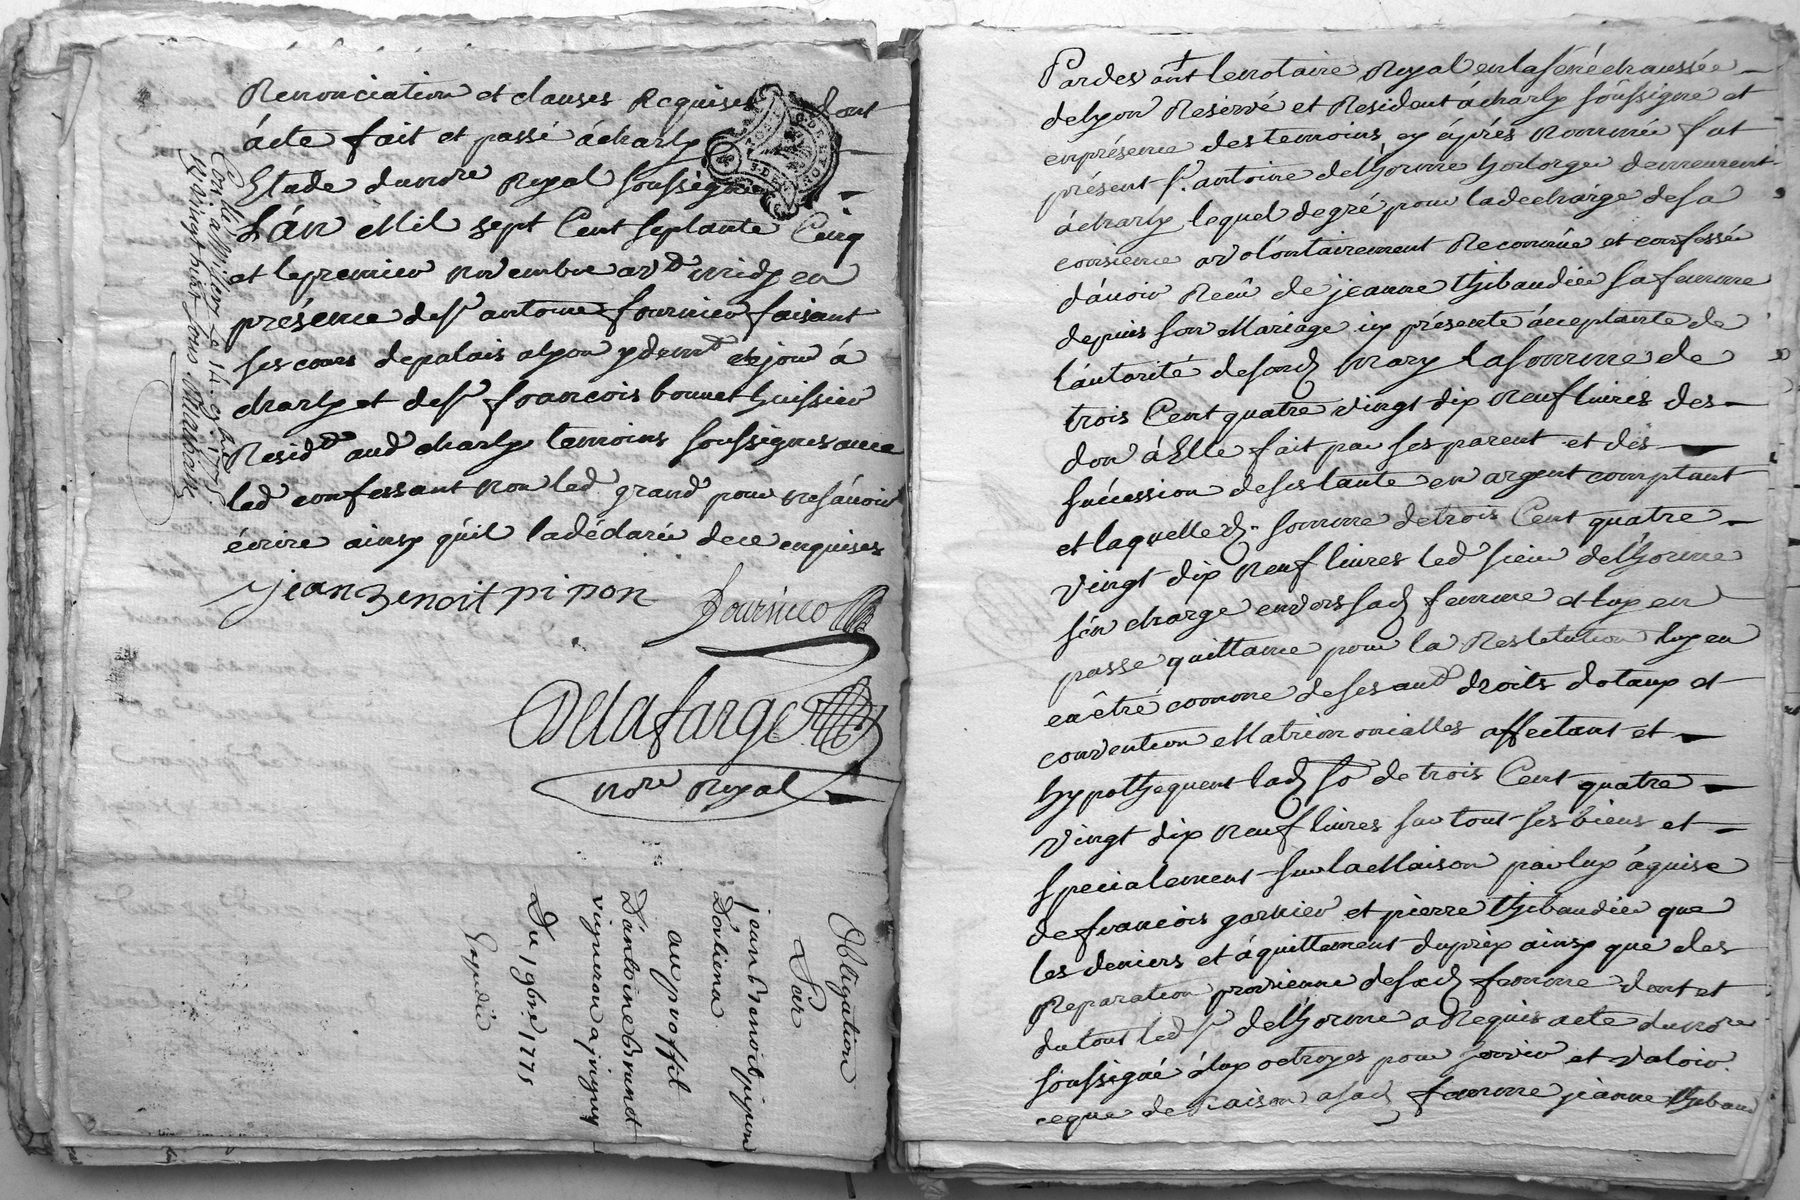 Renonciation et clauses Requises dont
acte fait et passé à charly
Etude dunore Royal soussigné
L'án Mil sept Cent septante Cinq
et lepremier novembre avd midy en
présence de sr antoine fournier faisant
ses cours depalais alyon ydemt cejour á
charly et de sr francois bonnet huissier
Residt aud charly temoins soussignes avec
led confessant non led grand pour nesavoir
écrire ainsy qúil ladéclaré dece enquises
jean Benoit pipon
fournier
Delafarge
nore Royal
Con.lé a Millery le 14 9bre 1775
Obligation
Par
jean Benoit pipon
D'orliena
au proffil
D'antoine brundt
vigneron a jrigny
Du 1 9bre 1775
Expediée
Pardevánt lenotaire Royal enlasénéchaussée
delyon Reservé et Resident ácharly soussigné et
enprésence destemoins cy áprés nommée fut
présent sr. antoine delhorme horloger demeurent
ácharly lequel degré pour ladecharge desa
consience avolontairement Reconnüe et confessée
d'ávoir Reçû de jeanne thibaudiée safemme
depuis son Mariage icy présente ácceptante de
lautorité desond mary lasomme de
trois Cent quatre vingt dix neuf livres des
don á Elle fait par ses parent et des
sucession deses tante en argent comptant
et laquelle d. somme detrois Cent quatre
vingt dix neuf livres led sieur delhorme
s'én charge envers sad femme et luy en
passe quittance pour la Restetution luy en
enêtre comme deses autd droits dotaux et
convention Matrimonialles affectant et
hypothequent lad so de trois Cent quatre
vingt dix neuf livres sur tout ses biens et
specialement sur la Maison par luy áquise
de francois garnier et pierre thibaudier que
les deniers et áquittement duprix ainsy que des
Reparation provienne desad femme dont et
dutout led sr delhorme a Requis acte dunore
soussigné áluy octroyes pour servir et valoir
ceque de Raison asad femme jeanne thibaud